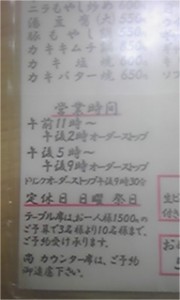 ニラもやし炒め
湯豆腐(火)550
豚もやし
カキキムチ
カキ塩焼 600
カキバター焼 650
営業時間
午前11時〜
午後2時オーダーストップ
午後5時〜
午後9時オーダーストップ
ドリンクオーダーストップ午後9時30分
定休日 日曜 祭日
テーブル席はお一人様1500円の
ご予算で3名様より10名様まで、
ご予約受け承ります。
尚 カウンター席は、ご予約
御遠慮下さい。
生ビ
付き
お